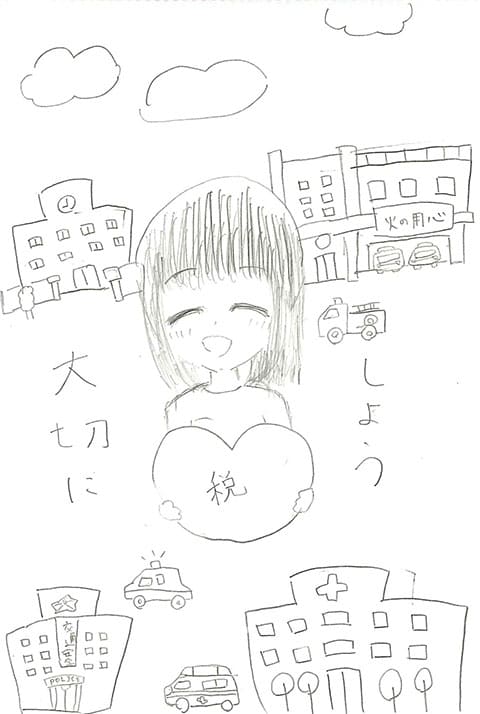 火の用心
大
切に
しょう
税
交通安全
POLICE